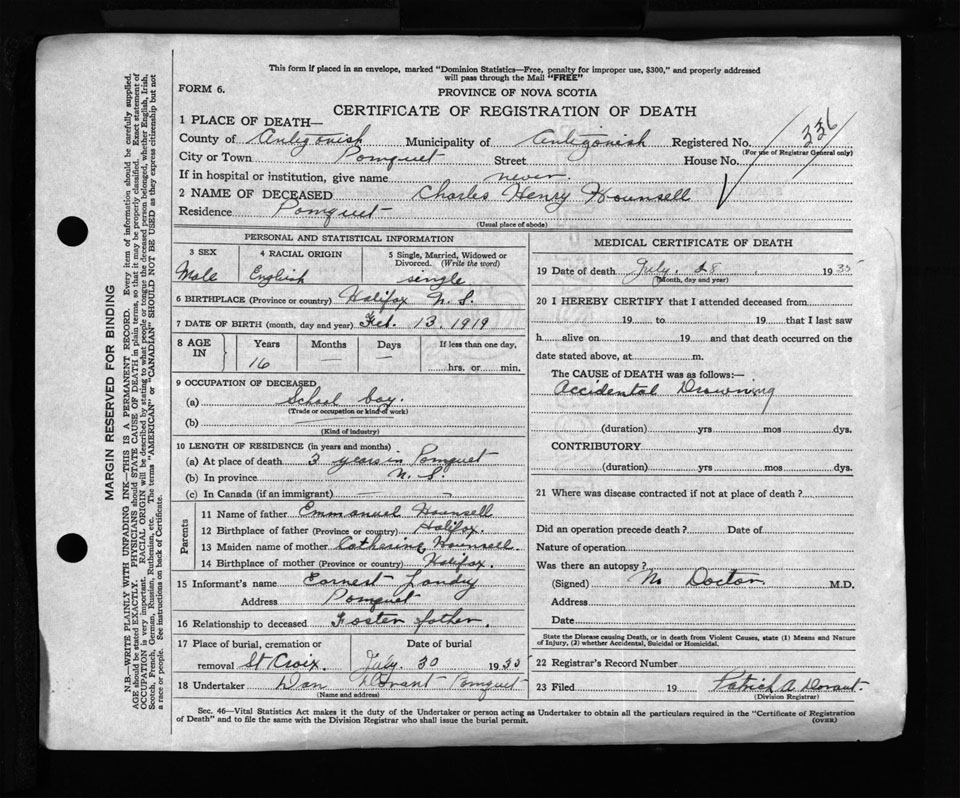 This form if placed in an envelope, marked "Dominion Statistics—Free, penalty for improper use, $300," and properly addressed
will pass through the Mail "FREE"
FORM 6.
PROVINCE OF NOVA SCOTIA
CERTIFICATE OF REGISTRATION OF DEATH
336
1 PLACE OF DEATH—
County of Antigonish Municipality of Antigonish Registered No.
(For use of Registrar General only)
City or Town Pomquet Street House No.
If in hospital or institution, give name never
2 NAME OF DECEASED Charles Henry Hounsell
Residence Pomquet
(Usual place of abode)
PERSONAL AND STATISTICAL INFORMATION
3 SEX 4 RACIAL ORIGIN 5 Single, Married, Widowed or
Divorced. (Write the word)
Male English single
6 BIRTHPLACE (Province or country) Halifax N. S.
7 DATE OF BIRTH (month, day and year) Feb. 13. 1919
8 AGE IN Years Months Days If less than one day,
16 — — hrs. or min.
9 OCCUPATION OF DECEASED
(a) School boy.
(Trade or occupation or kind of work)
(b)
(Kind of industry)
10 LENGTH OF RESIDENCE (in years and months)
(a) At place of death 3 years in Pomquet
(b) In province N. S.
(c) In Canada (if an immigrant)
Parents
11 Name of father Emmanuel Hounsell
12 Birthplace of father (Province or country) Halifax.
13 Maiden name of mother Catherine Hounsell.
14 Birthplace of mother (Province or country) Halifax.
15 Informant's name Earnest Landry
Address Pomquet
16 Relationship to deceased Foster father.
17 Place of burial, cremation or Date of burial
removal St Croix. July. 30 1935
18 Undertaker Dan Pomquet
(Name and address)
MEDICAL CERTIFICATE OF DEATH
19 Date of death July. 28 1935
(Month, day and year)
20 I HEREBY CERTIFY that I attended deceased from
19 to 19 that I last saw
h alive on 19 and that death occurred on the
date stated above, at m.
The CAUSE of DEATH was as follows:—
Accidental Drowning
(duration) yrs mos dys.
CONTRIBUTORY
(duration) yrs mos dys.
21 Where was disease contracted if not at place of death?
Did an operation precede death? Date of
Nature of operation
Was there an autopsy?
(Signed) No Doctor M.D.
Address
Date
State the Disease causing Death, or in death from Violent Causes, state (1) Means and Nature
of Injury, (2) whether Accidental, Suicidal or Homicidal.
22 Registrar's Record Number
23 Filed 19 Patrick A
(Division Registrar)
Sec. 46—Vital Statistics Act makes it the duty of the Undertaker or person acting as Undertaker to obtain all the particulars required in the "Certificate of Registration
of Death" and to file the same with the Division Registrar who shall issue the burial permit.
(OVER)
MARGIN RESERVED FOR BINDING
N.B.—WRITE PLAINLY WITH UNFADING INK—THIS IS A PERMANENT RECORD. Every item of information should be carefully supplied.
AGE should be stated EXACTLY. PHYSICIANS should STATE CAUSE OF DEATH in plain terms, so that it may be properly classified. Exact statement of
OCCUPATION is very important. RACIAL ORIGIN will be described by stating to what people or tongue the deceased person belonged, whether English, Irish,
Scotch, French, German, Russian, Ruthenian, etc. The terms "AMERICAN" or "CANADIAN" SHOULD NOT BE USED as they express citizenship but not
a race or people. See instructions on back of Certificate.